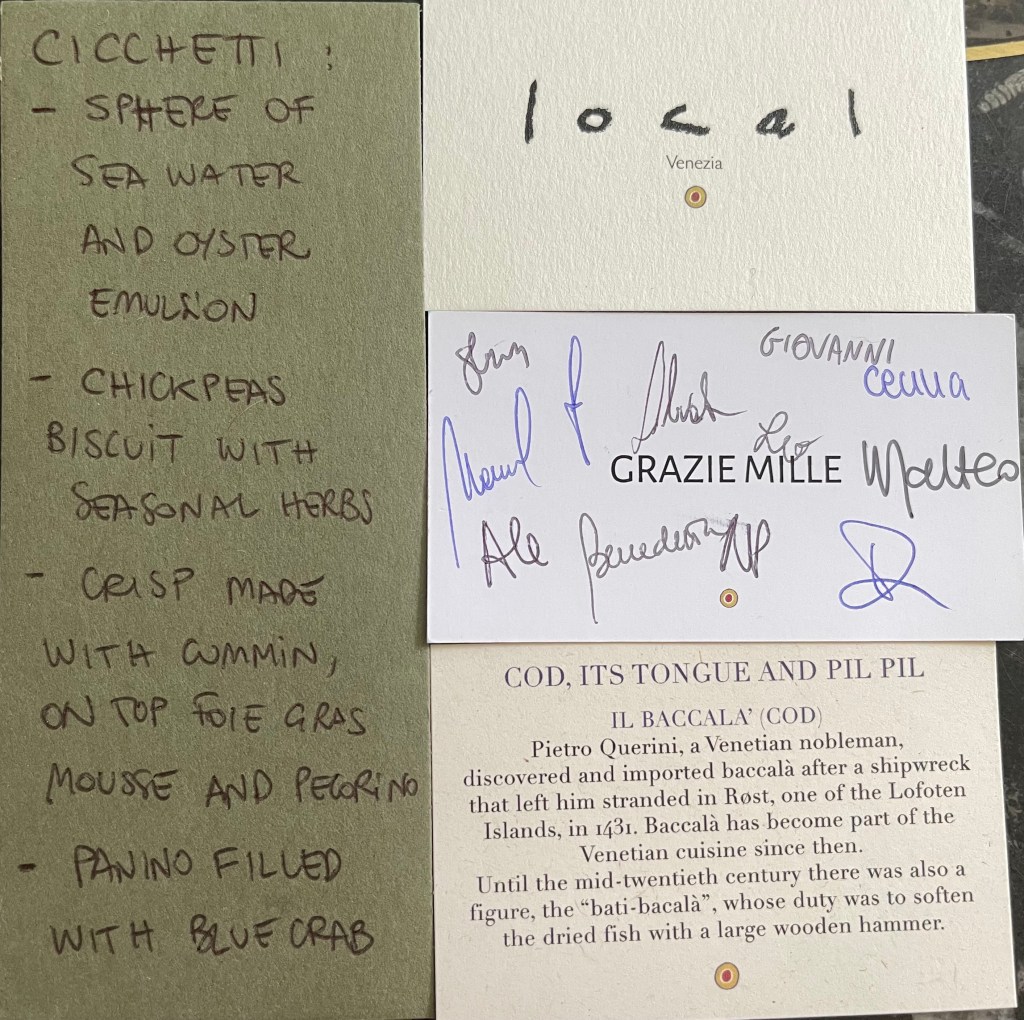 CICCHETTI :
- SPHERE OF
SEA WATER
AND OYSTER
EMULSION
- CHICKPEAS
BISCUIT WITH
SEASONAL HERBS
- CRISP MADE
WITH CUMMIN,
ON TOP FOIE GRAS
MOUSSE AND PECORINO
- PANINO FILLED
WITH BLUE CRAB
local
Venezia
GIOVANNI
Leo
GRAZIE MILLE
Matteo
Ale
Benedetta
COD, ITS TONGUE AND PIL PIL
IL BACCALA' (COD)
Pietro Querini, a Venetian nobleman,
discovered and imported baccalà after a shipwreck
that left him stranded in Røst, one of the Lofoten
Islands, in 1431. Baccalà has become part of the
Venetian cuisine since then.
Until the mid-twentieth century there was also a
figure, the “bati-bacalà”, whose duty was to soften
the dried fish with a large wooden hammer.